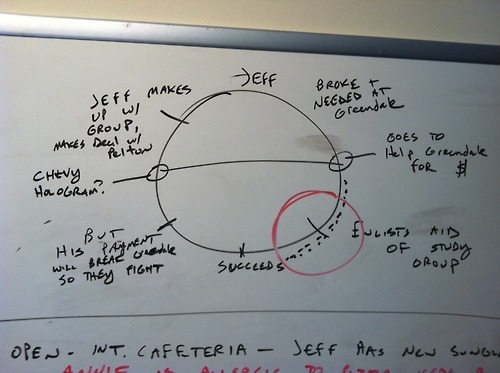 JEFF
BROKE +
NEEDED AT
Greendale
GOES TO
Help Greendale
FOR $
ENLISTS AID
OF STUDY
GROUP
SUCCEEDS
BUT
HIS PAYMENT
WILL BREAK Greendale
SO THEY FIGHT
CHEVY
HOLOGRAM?
JEFF MAKES
UP W/
GROUP,
MAKES Deal w/
Pelton
OPEN - INT. CAFETERIA - JEFF HAS NEW
ANNIE IS ALLERGIC TO